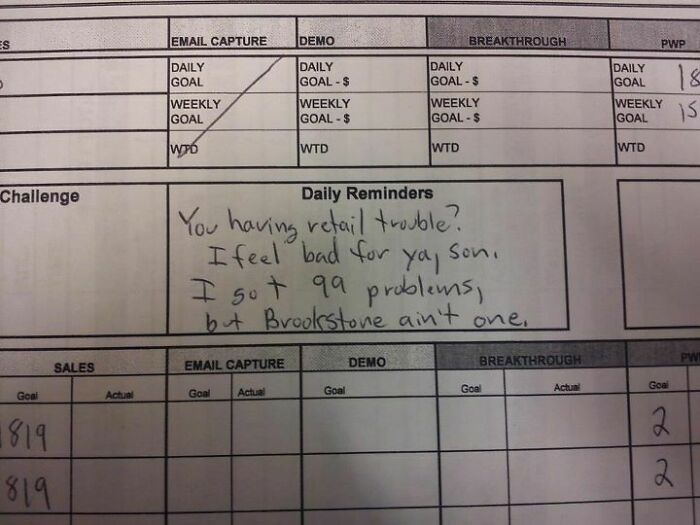 ES EMAIL CAPTURE DEMO BREAKTHROUGH PWP
DAILY GOAL DAILY GOAL - $ DAILY GOAL - $ DAILY GOAL 18
WEEKLY GOAL WEEKLY GOAL - $ WEEKLY GOAL - $ WEEKLY GOAL 15
WTD WTD WTD WTD
Challenge Daily Reminders
You having retail trouble?
I feel bad for ya, son.
I got 99 problems,
but Brookstone ain't one.
SALES EMAIL CAPTURE DEMO BREAKTHROUGH PW
Goal Actual Goal Actual Goal Goal Actual Goal
819 2
819 2